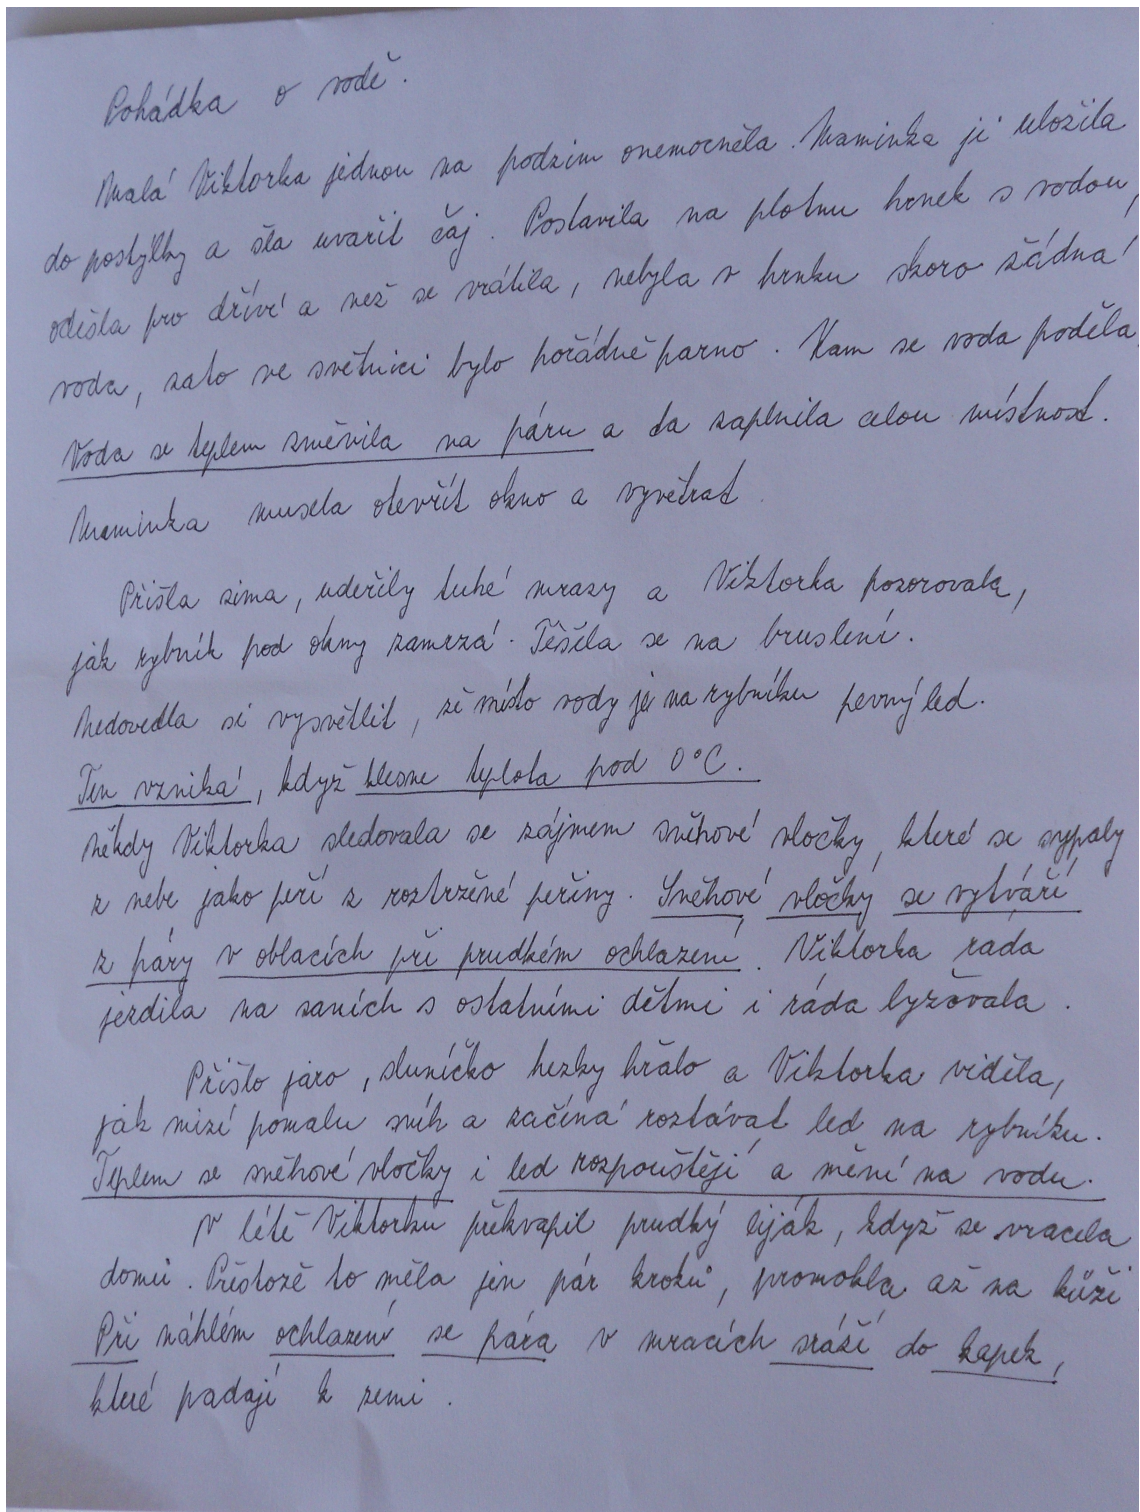 Pohádka o vodě.
Malá Viktorka jednou na podzim onemocněla. Maminka ji uložila
do postýlky a šla uvařit čaj. Postavila na plotnu hrnek s vodou,
odešla pro dříví a než se vrátila, nebyla v hrnku skoro žádná
voda, zato ve světnici bylo pořádně parno. Kam se voda poděla
Voda se teplem změnila na páru a ta zaplnila celou místnost.
Maminka musela otevřít okno a vyvětrat.
Přišla zima, udeřily tuhé mrazy a Viktorka pozorovala,
jak rybník pod okny zamrzá. Těšila se na bruslení.
Nedovedla si vysvětlit, že místo vody je na rybníku pevný led.
Ten vzniká, když klesne teplota pod 0°C.
Někdy Viktorka sledovala se zájmem sněhové vločky, které se sypaly
z nebe jako peří z roztržené peřiny. Sněhové vločky se vytváří
z páry v oblacích při prudkém ochlazení. Viktorka rada
jezdila na saních s ostatními dětmi i ráda lyžovala.
Přišlo jaro, sluníčko hezky hřálo a Viktorka viděla,
jak mizí pomalu sníh a začíná roztávat led na rybníku.
Teplem se sněhové vločky i led rozpouštějí a mění na vodu.
V létě Viktorku překvapil prudký liják, když se vracela
domů. Přestože to měla jen pár kroků, promokla až na kůži
Při náhlém ochlazení se pára v mracích sráží do kapek,
které padají k zemi.